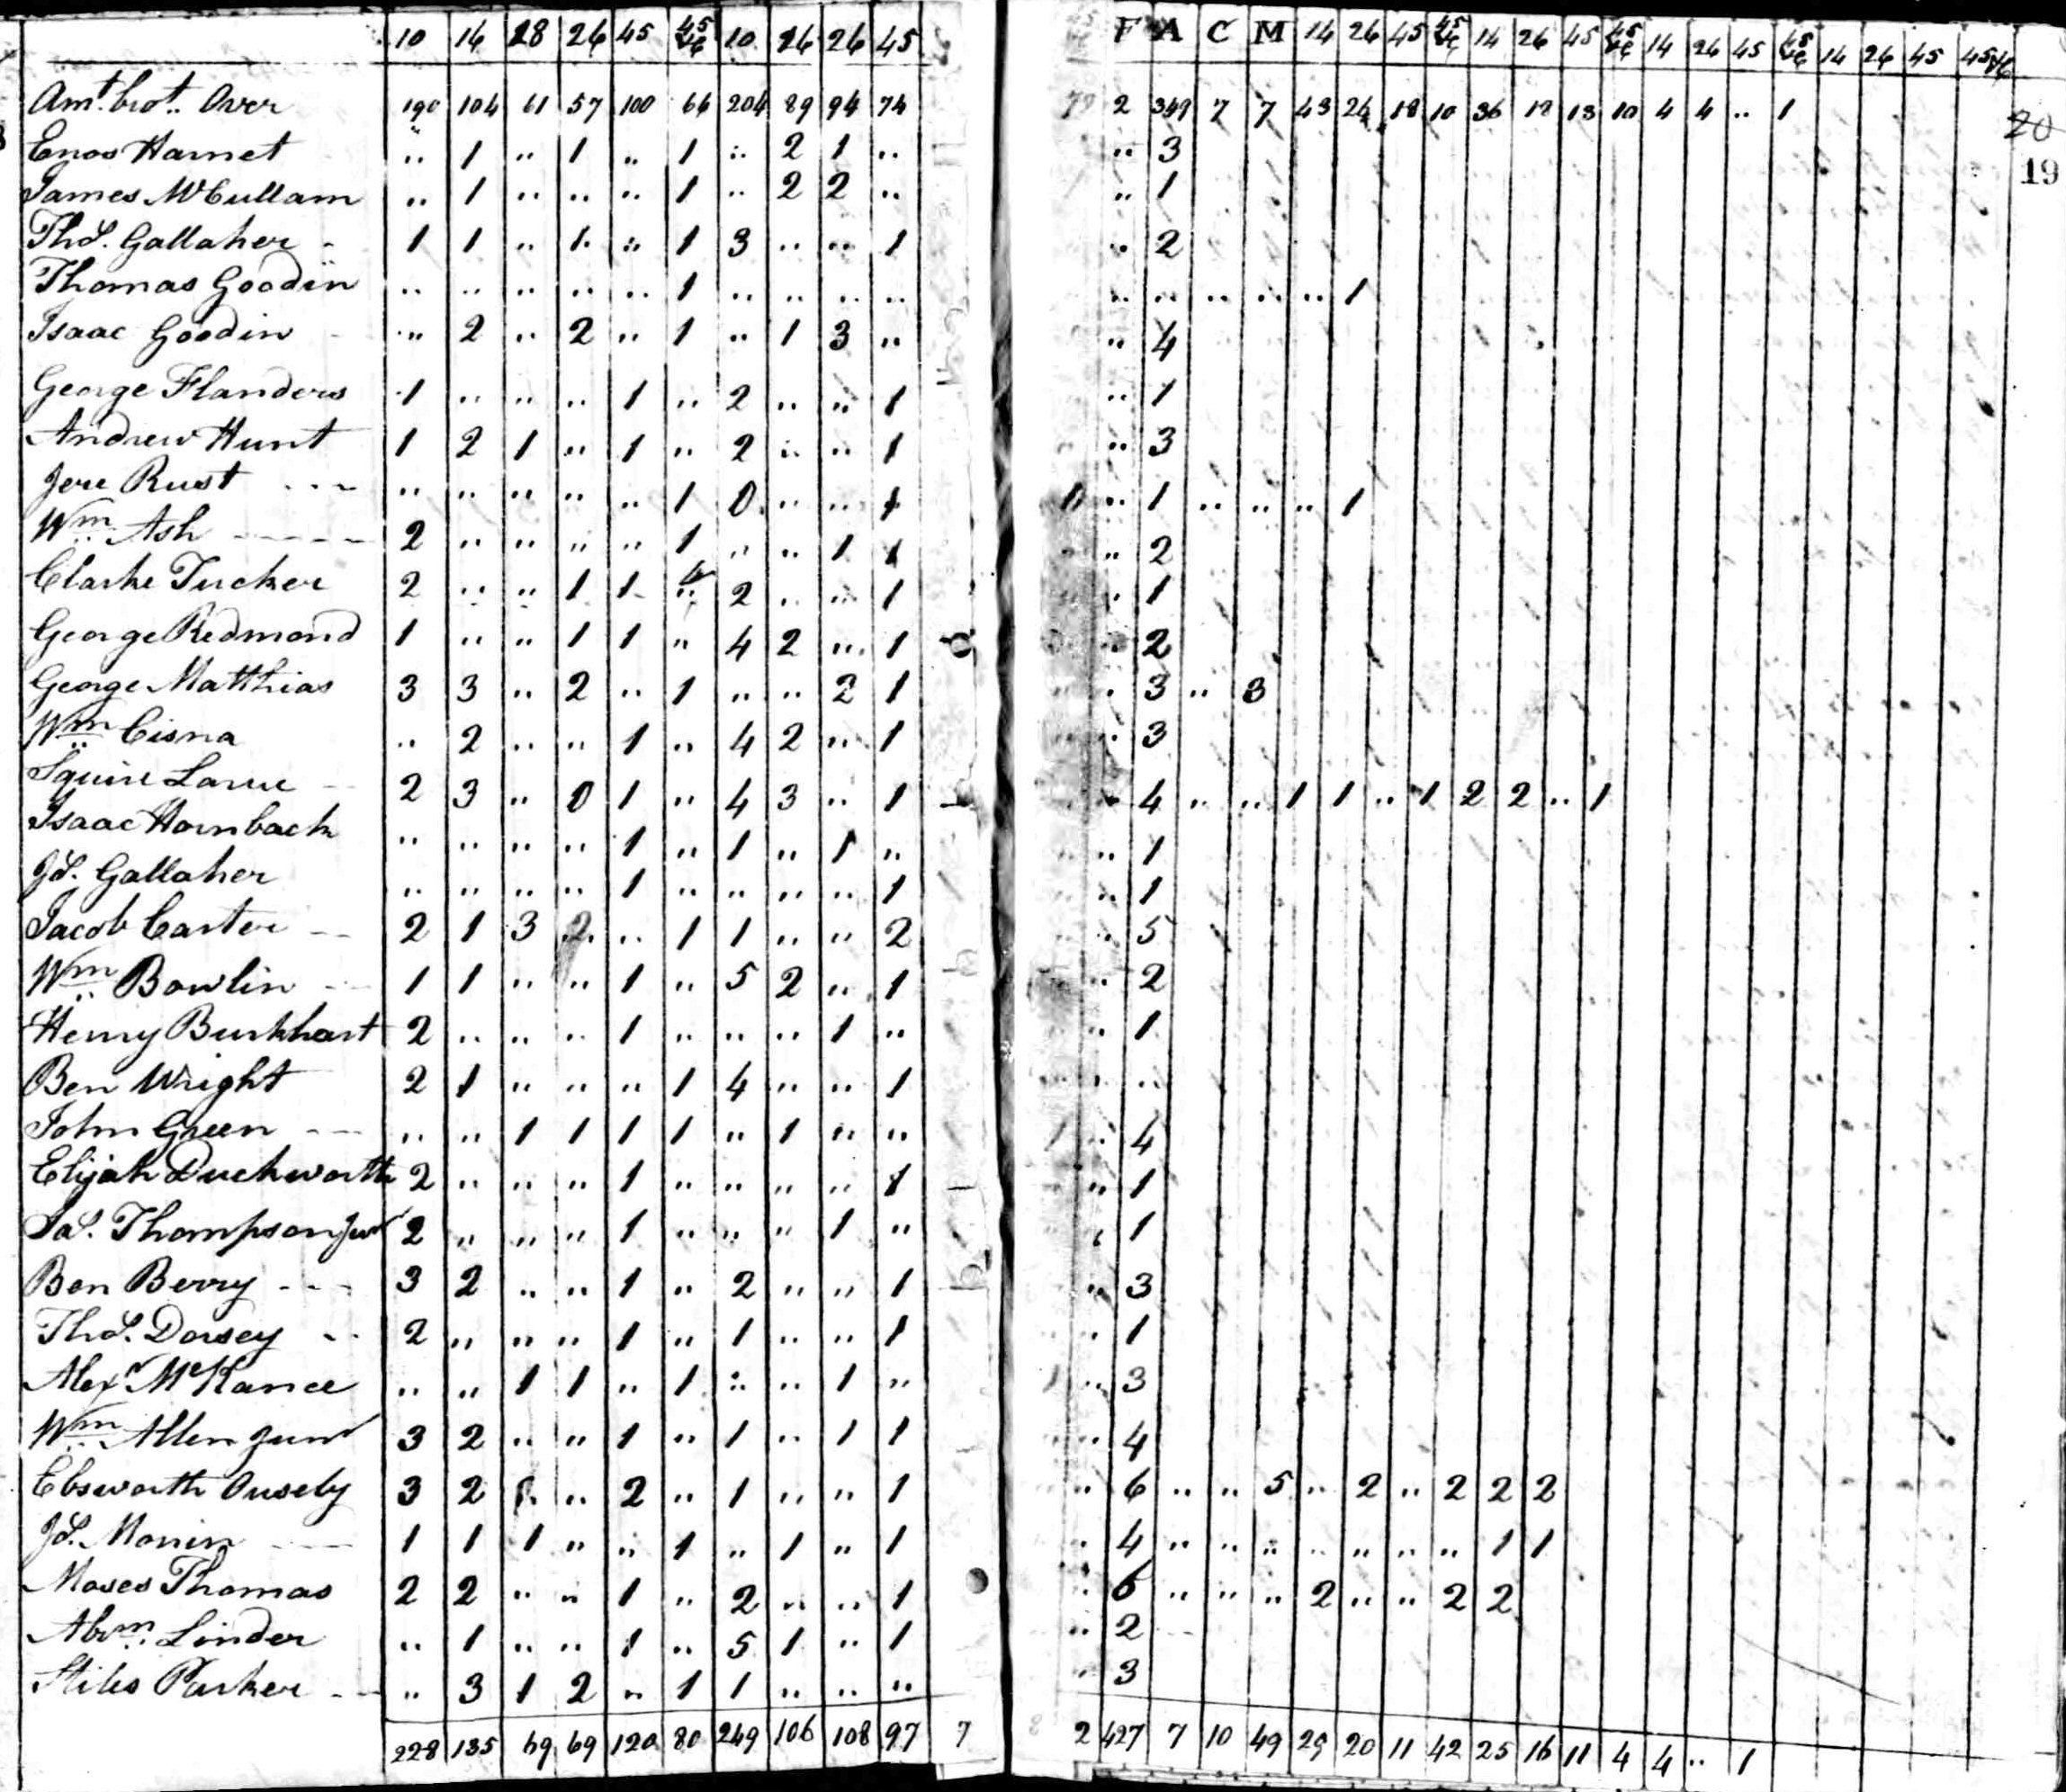 10 16 18 26 45 45 &c 10 16 26 45 F A C M 14 26 45 45 &c 14 26 45 45 &c 14 26 45 45 &c 14 26 45 45 &c
Amt. brot. Over 190 104 61 57 100 66 204 89 94 74 2 349 7 7 43 26 18 10 36 18 13 10 4 4 .. 1
20
19
Enos Harnet .. 1 .. 1 .. 1 .. 2 1 .. .. 3
James McCullam .. 1 .. .. .. 1 .. 2 2 .. .. 1
Thos. Gallaher 1 1 .. 1 .. 1 3 .. .. 1 .. 2
Thomas Goodin .. .. .. .. .. 1 .. .. .. .. .. .. .. .. .. 1
Isaac Goodin .. 2 .. 2 .. 1 .. 1 3 .. .. 4
George Flanders 1 .. .. .. 1 .. 2 .. .. 1 .. 1
Andrew Hunt 1 2 1 .. 1 .. 2 .. .. 1 .. 3
Jere Rust .. .. .. .. .. 1 0 .. .. 1 .. 1 .. .. .. 1
Wm Ash 2 .. .. .. .. 1 .. .. 1 1 .. 2
Clarke Tucker 2 .. .. 1 1 .. 2 .. .. 1 . 1
George Redmond 1 .. .. 1 1 .. 4 2 .. 1 .. 2
George Matthias 3 3 .. 2 .. 1 .. .. 2 1 . 3 .. 3
Wm Cisna .. 2 .. .. 1 .. 4 2 .. 1 . 3
Squire Larue 2 3 .. 0 1 .. 4 3 .. 1 . 4 .. .. 1 1 .. 1 2 2 .. 1
Isaac Hornback .. .. .. .. 1 .. 1 .. 1 .. .. 1
Js. Gallaher .. .. .. .. 1 .. .. .. .. 1 .. 1
Jacob Carter 2 1 3 2 .. 1 1 .. .. 2 .. 5
Wm Bowlin 1 1 .. .. 1 .. 5 2 .. 1 .. 2
Henry Burkhart 2 .. .. .. 1 .. .. .. 1 .. .. 1
Ben Wright 2 1 .. .. .. 1 4 .. .. 1 . ..
John Green .. .. 1 1 1 1 .. 1 .. .. . 4
Elijah Duckworth 2 .. .. .. 1 .. .. .. .. 1 .. 1
Thompson Junr 2 .. .. .. 1 .. .. .. 1 .. . 1
Ben Berry 3 2 .. .. 1 .. 2 .. .. 1 .. 3
Thos. Dorsey 2 .. .. .. 1 .. 1 .. .. 1 . 1
Alexr McKance .. .. 1 1 .. 1 .. .. 1 .. .. 3
Wm Allen Junr 3 2 .. .. 1 .. 1 .. 1 1 .. 4
Ebsworth Ousely 3 2 .. 2 .. 1 .. .. 1 .. 6 .. .. 5 .. 2 .. 2 2 2
Js. Monin 1 1 1 .. .. 1 .. 1 .. 1 . 4 .. .. .. .. .. .. .. 1 1
Moses Thomas 2 2 .. .. 1 .. 2 .. .. 1 . 6 .. .. .. 2 .. .. 2 2
Abrm. Linder .. 1 .. .. 1 .. 5 1 .. 1 .. 2
Stiles Parker .. 3 1 2 .. 1 1 .. .. .. . 3
228 135 69 69 120 80 249 106 108 97 7 2 427 7 10 49 29 20 11 42 25 16 11 4 4 .. 1